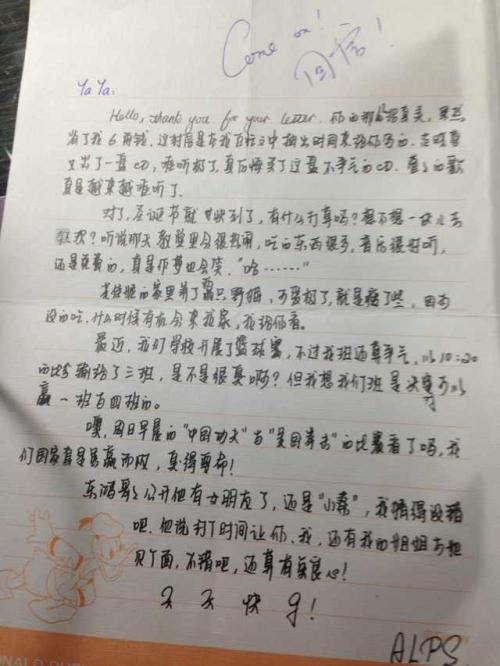 Come on!
回信!
YaYa:
Hello, thank you for your letter. 你的那招真灵，果然
省了我6角钱。这封信是在我百忙之中抽出时间来给你写的。
又出了一盘CD，难听极了，真后悔买了这盘不争气的CD。的歌
真是越来越难听了。
对了，圣诞节就快到了，有什么打算吗？想不想一块儿去
狂欢？听说那天教堂里会很热闹，吃的东西很多，音乐很好听，
还是免费的，真是作梦也会笑。"哈……"
的家里养了只野猫，可爱极了，就是瘦了些，因为
没的吃。什么时候有机会来我家，我给你看。
最近，我们学校开展了篮球赛，不过我班还算争气，以10:20
的比分输给了三班，是不是很臭啊？但我想我们班是决对可以
赢一班与四班的。
噢，周日早晨的"中国功夫"与"美国拳击"的比赛看了吗，我
们国家真是另赢两散，真得要命！
东鸿哥公开他有女朋友了，还是"小"，我猜得没错
吧。他说打个时间让你、我，还有我的姐姐与他
见个面，不错吧，还算有良心！
天天快乐！
ALPS